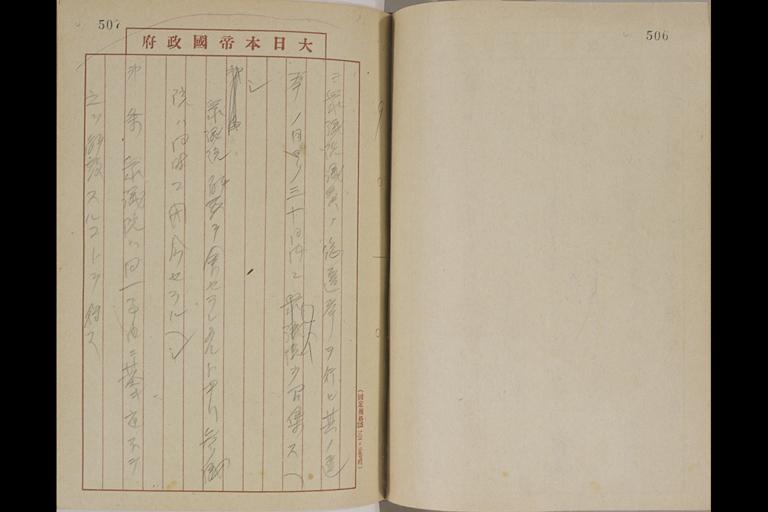 506
507
大日本帝國政府
ニ衆議院議員ノ総選挙ヲ行ヒ其ノ選
挙ノ日ヨリ三十日以内ニ衆議院ヲ召集スヘ
シ
衆議院解散ヲ命セラレタルトキハ参議
院ハ同時ニ閉会セラルヘシ
第 条 衆議院ハ同一事由ニ基キ重ネテ
之ヲ解散スルコトヲ得ス